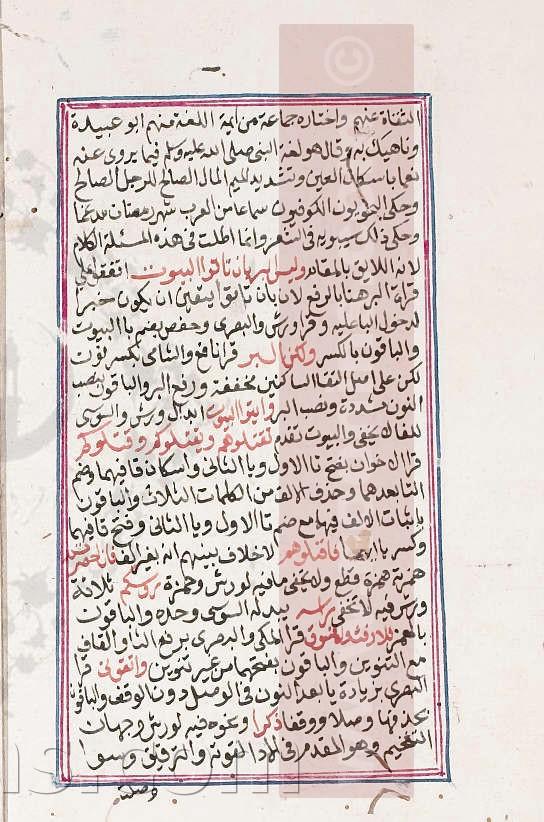 الثقاة عنهم واختاره جماعة من ايمة اللغة منهم ابو عبيدة
وناهيك به وقال هو لغة النبي صلى الله عليه وسلم فيما يروى عنه
نعما باسكان العين وتشديد الميم المال الصالح للرجل الصالح
وحكى النحويون الكوفيون سماعا من العرب شهر رمضان مدغما
وحكى ذلك سيبويه في الشعر وانما اطلت في هذه المسئلة الكلام
لانه اللايق بالمقام وليس البر بان تاتوا البيوت اتفقوا على
قراة البر هنا بالرفع لان بان تاتوا يتعين ان يكون خبرا
لدخول الباء عليه وقرا ورش والبصرى وحفص بضم باء البيوت
والباقون بالكسر ولكن البر قرا نافع والشامى بكسر نون
لكن على اصل التقاء الساكنين مخففة ورفع البر والباقون بنصب
النون مشددة ونصب البر واتوا البيوت ابدال ورش والسوسى
للفاك يخفى والبيوت تقدم تقتلوهم ويقتلوكم وقتلوكم
قرا الاخوان بفتح تاء الاول وياء الثانى واسكان قافيهما وضم
التا بعدهما وحذف الالف من الكلمات الثلاث والباقون
باثبات الالف فيها مع ضم تا الاول ويا الثانى وفتح قافيهما
وكسر تاايهما فاقتلوهم لا خلاف بينهم انه بغير الف فان احصرتم
همزته همزة قطع ولا يخفى ما فيه لورش وحمزة روسكم ثلاثة
ورش فيه لا تخفى راسه يبدله السوسى وحده والباقون
بالهمز فلا رفث ولا فسوق قرا المكى والبصرى برفع الثا والقاف
مع التنوين والباقون بفتحهما من غير تنوين واتقونى قرا
البصرى بزيادة ياء بعد النون في الوصل دون الوقف والباقون
بحذفها وصلا ووقفا ذكرا ونحوه فيه لورش وجهان
التفخيم وهو المقدم في الاداء لقوته والترقيق وسوا
وصلته